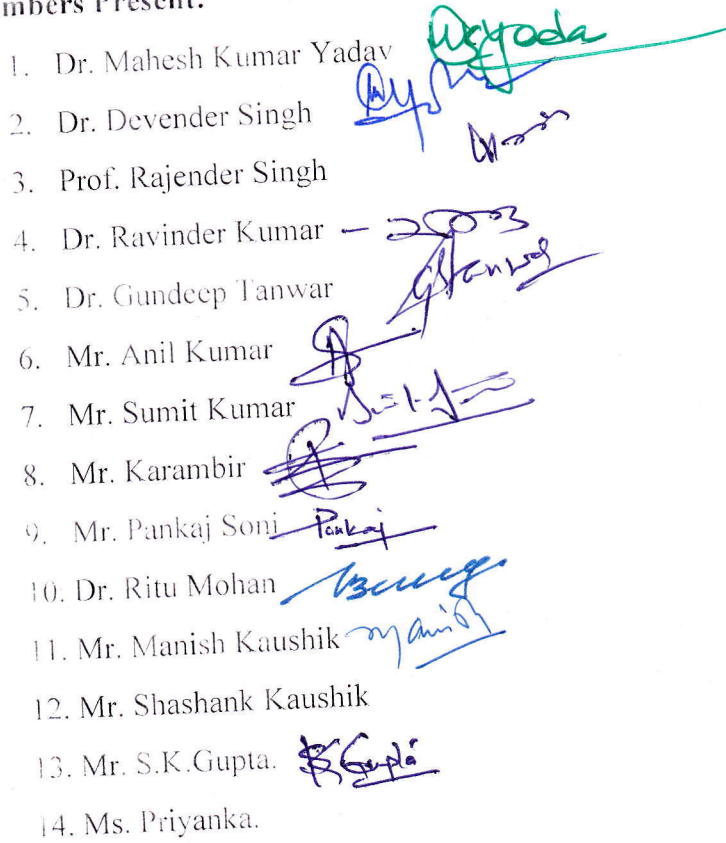 mbers Present:
1. Dr. Mahesh Kumar Yadav
2. Dr. Devender Singh
3. Prof. Rajender Singh
4. Dr. Ravinder Kumar –
5. Dr. Gundeep Tanwar GTanwar
6. Mr. Anil Kumar
7. Mr. Sumit Kumar
8. Mr. Karambir
9. Mr. Pankaj Soni Pankaj
10. Dr. Ritu Mohan
11. Mr. Manish Kaushik Manish
12. Mr. Shashank Kaushik
13. Mr. S.K.Gupta. SKGupta
14. Ms. Priyanka.